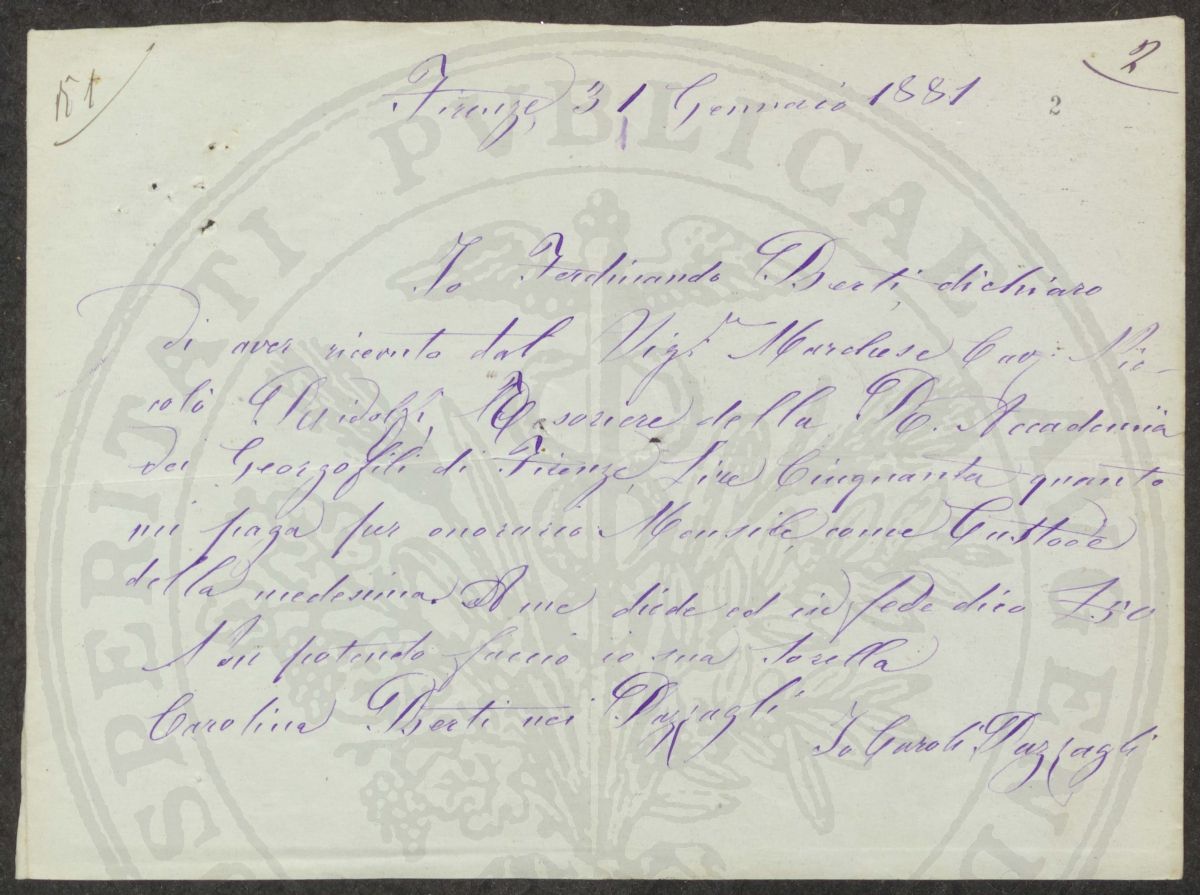 151
2
Firenze, 31 Gennaio 1881
2
Io Ferdinando Berti, dichiaro
di aver ricevuto dal Sig.r Marchese Cav: Nic-
colò Ridolfi, Tesoriere della R. Accademia
dei Georgofili di Firenze, Lire Cinquanta quanto
mi paga per onorario Mensile, come Custode
della medesima. A me diede ed in fede dico £50
Non potendo faccio io sua sorella
Carolina Berti nei Pazzagli
Io Caroli Pazzagli
PROSPERITATI PVBLICAE